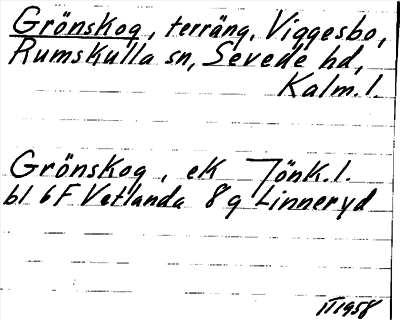 Grönskog, terräng, Viggesbo,
Rumskulla sn, Sevede hd,
Kalm.l.
Grönskog, ek Jönk.l.
bl 6F Vetlanda 8g Linneryd
III 1958